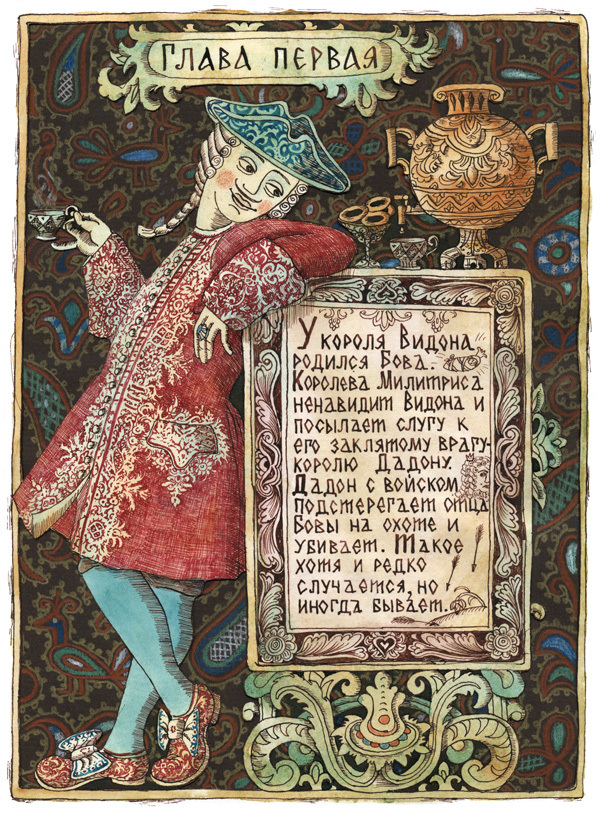 Глава первая
У короля Видона
родился Бова.
Королева Милитриса
ненавидит Видона и
посылает слугу к
его заклятому врагу-
королю Дадону.
Дадон с войском
подстерегает отца
Бовы на охоте и
убивает. Такое
хотя и редко
случается, но
иногда бывает.